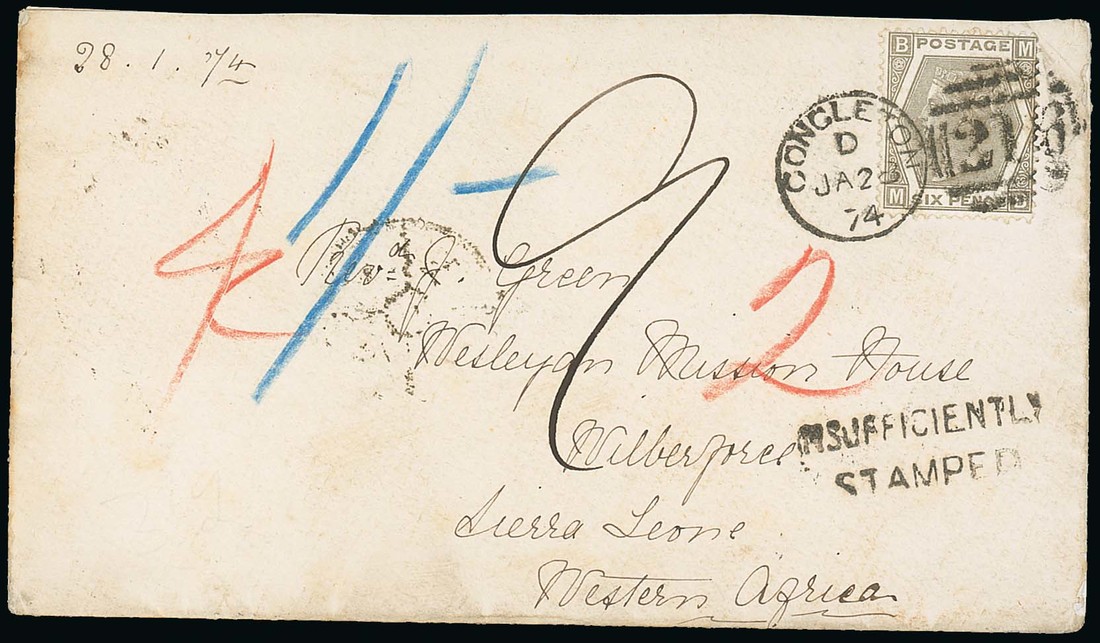 28 . 1 . 74
B POSTAGE M
M SIX PENCE
CONGLETON
D
JA 2
74
4 1/- 9 2
Revd J. Green
Wesleyan Mission House
Wilberforce
Sierra Leone
Western Africa
INSUFFICIENTLY
STAMPED